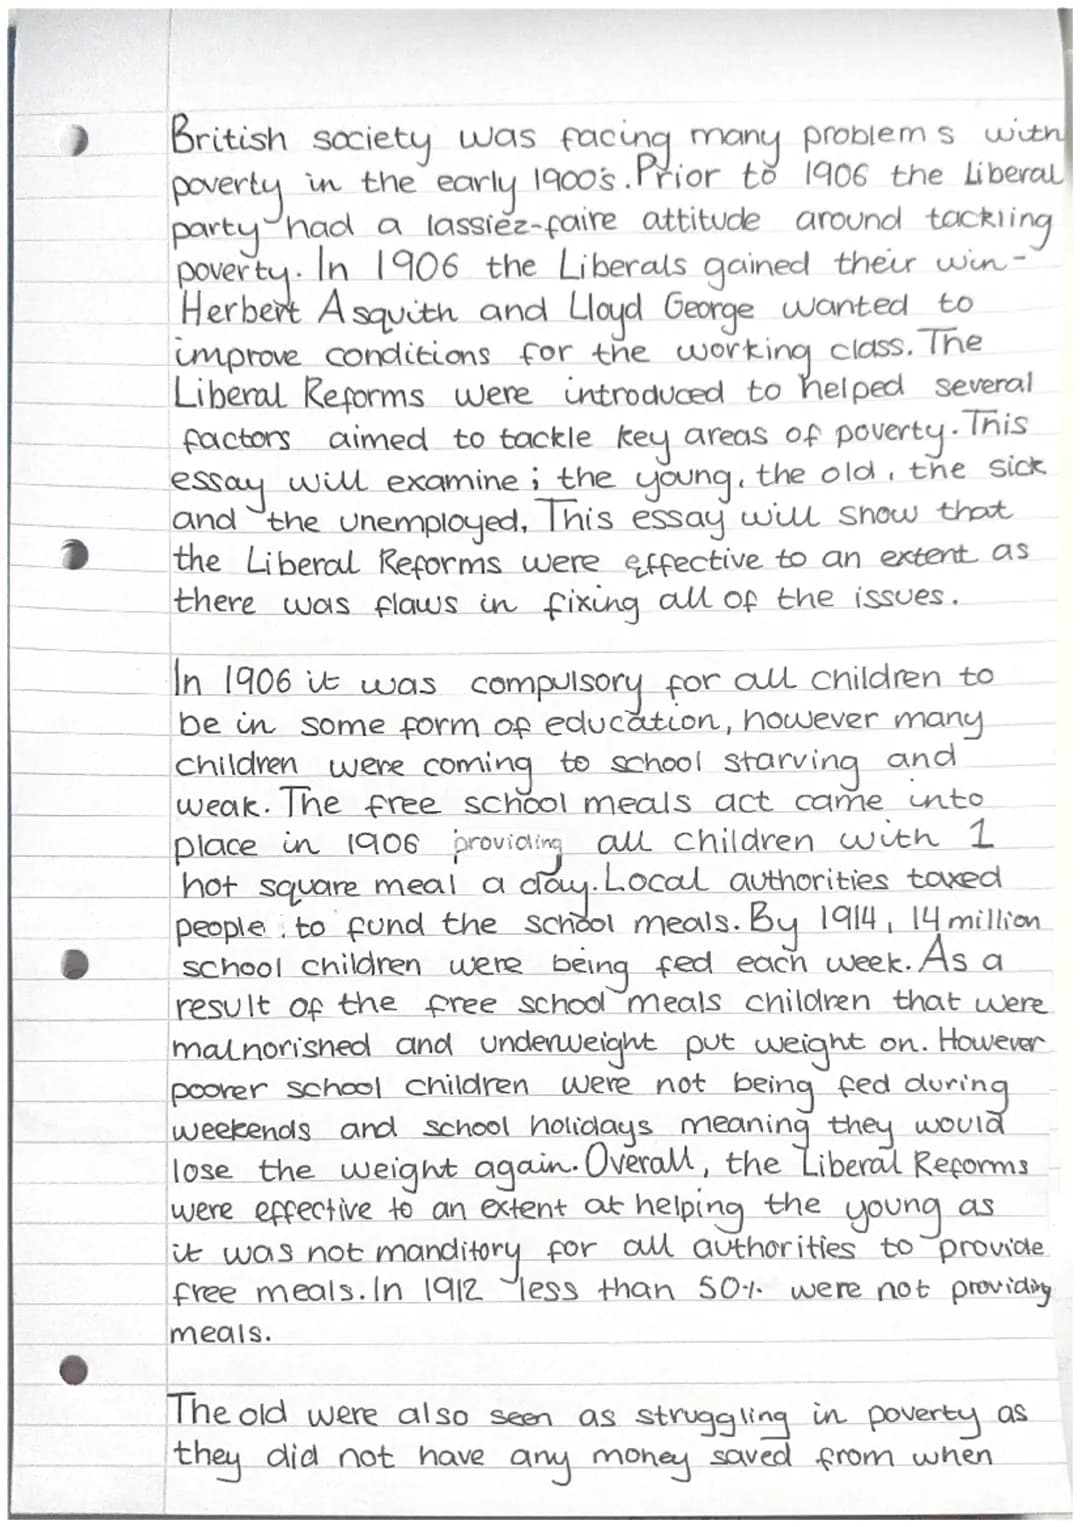 British society was facing many problems with
poverty in the early 1900's. Prior to 1906 the Liberal
party had a lassiez-faire attitude around tackling
poverty. In 1906 the Liberals gained their win-
Herbert Asquith and Lloyd George wanted to
improve conditions for the working class. The
Liberal Reforms were introduced to helped several
factors aimed to tackle key areas of poverty. This
essay will examine; the young, the old, the sick
and the unemployed, This essay will show that
the Liberal Reforms were effective to an extent as
there was flaws in fixing all of the issues.

In 1906 it was compulsory for all children to
be in some form of education, however many
children were coming to school starving and
weak. The free school meals act came into
place in 1906 providing all children with 1
hot square meal a day. Local authorities taxed
people to fund the school meals. By 1914, 14 million
school children were being fed each week. As a
result of the free school meals children that were
malnorished and underweight put weight on. However
poorer school children were not being fed during
weekends and school holidays meaning they would
lose the weight again. Overall, the Liberal Reforms
were effective to an extent at helping the young as
it was not manditory for all authorities to provide
free meals. In 1912 less than 50% were not providing
meals.

The old were also seen as struggling in poverty as
they did not have any money saved from when